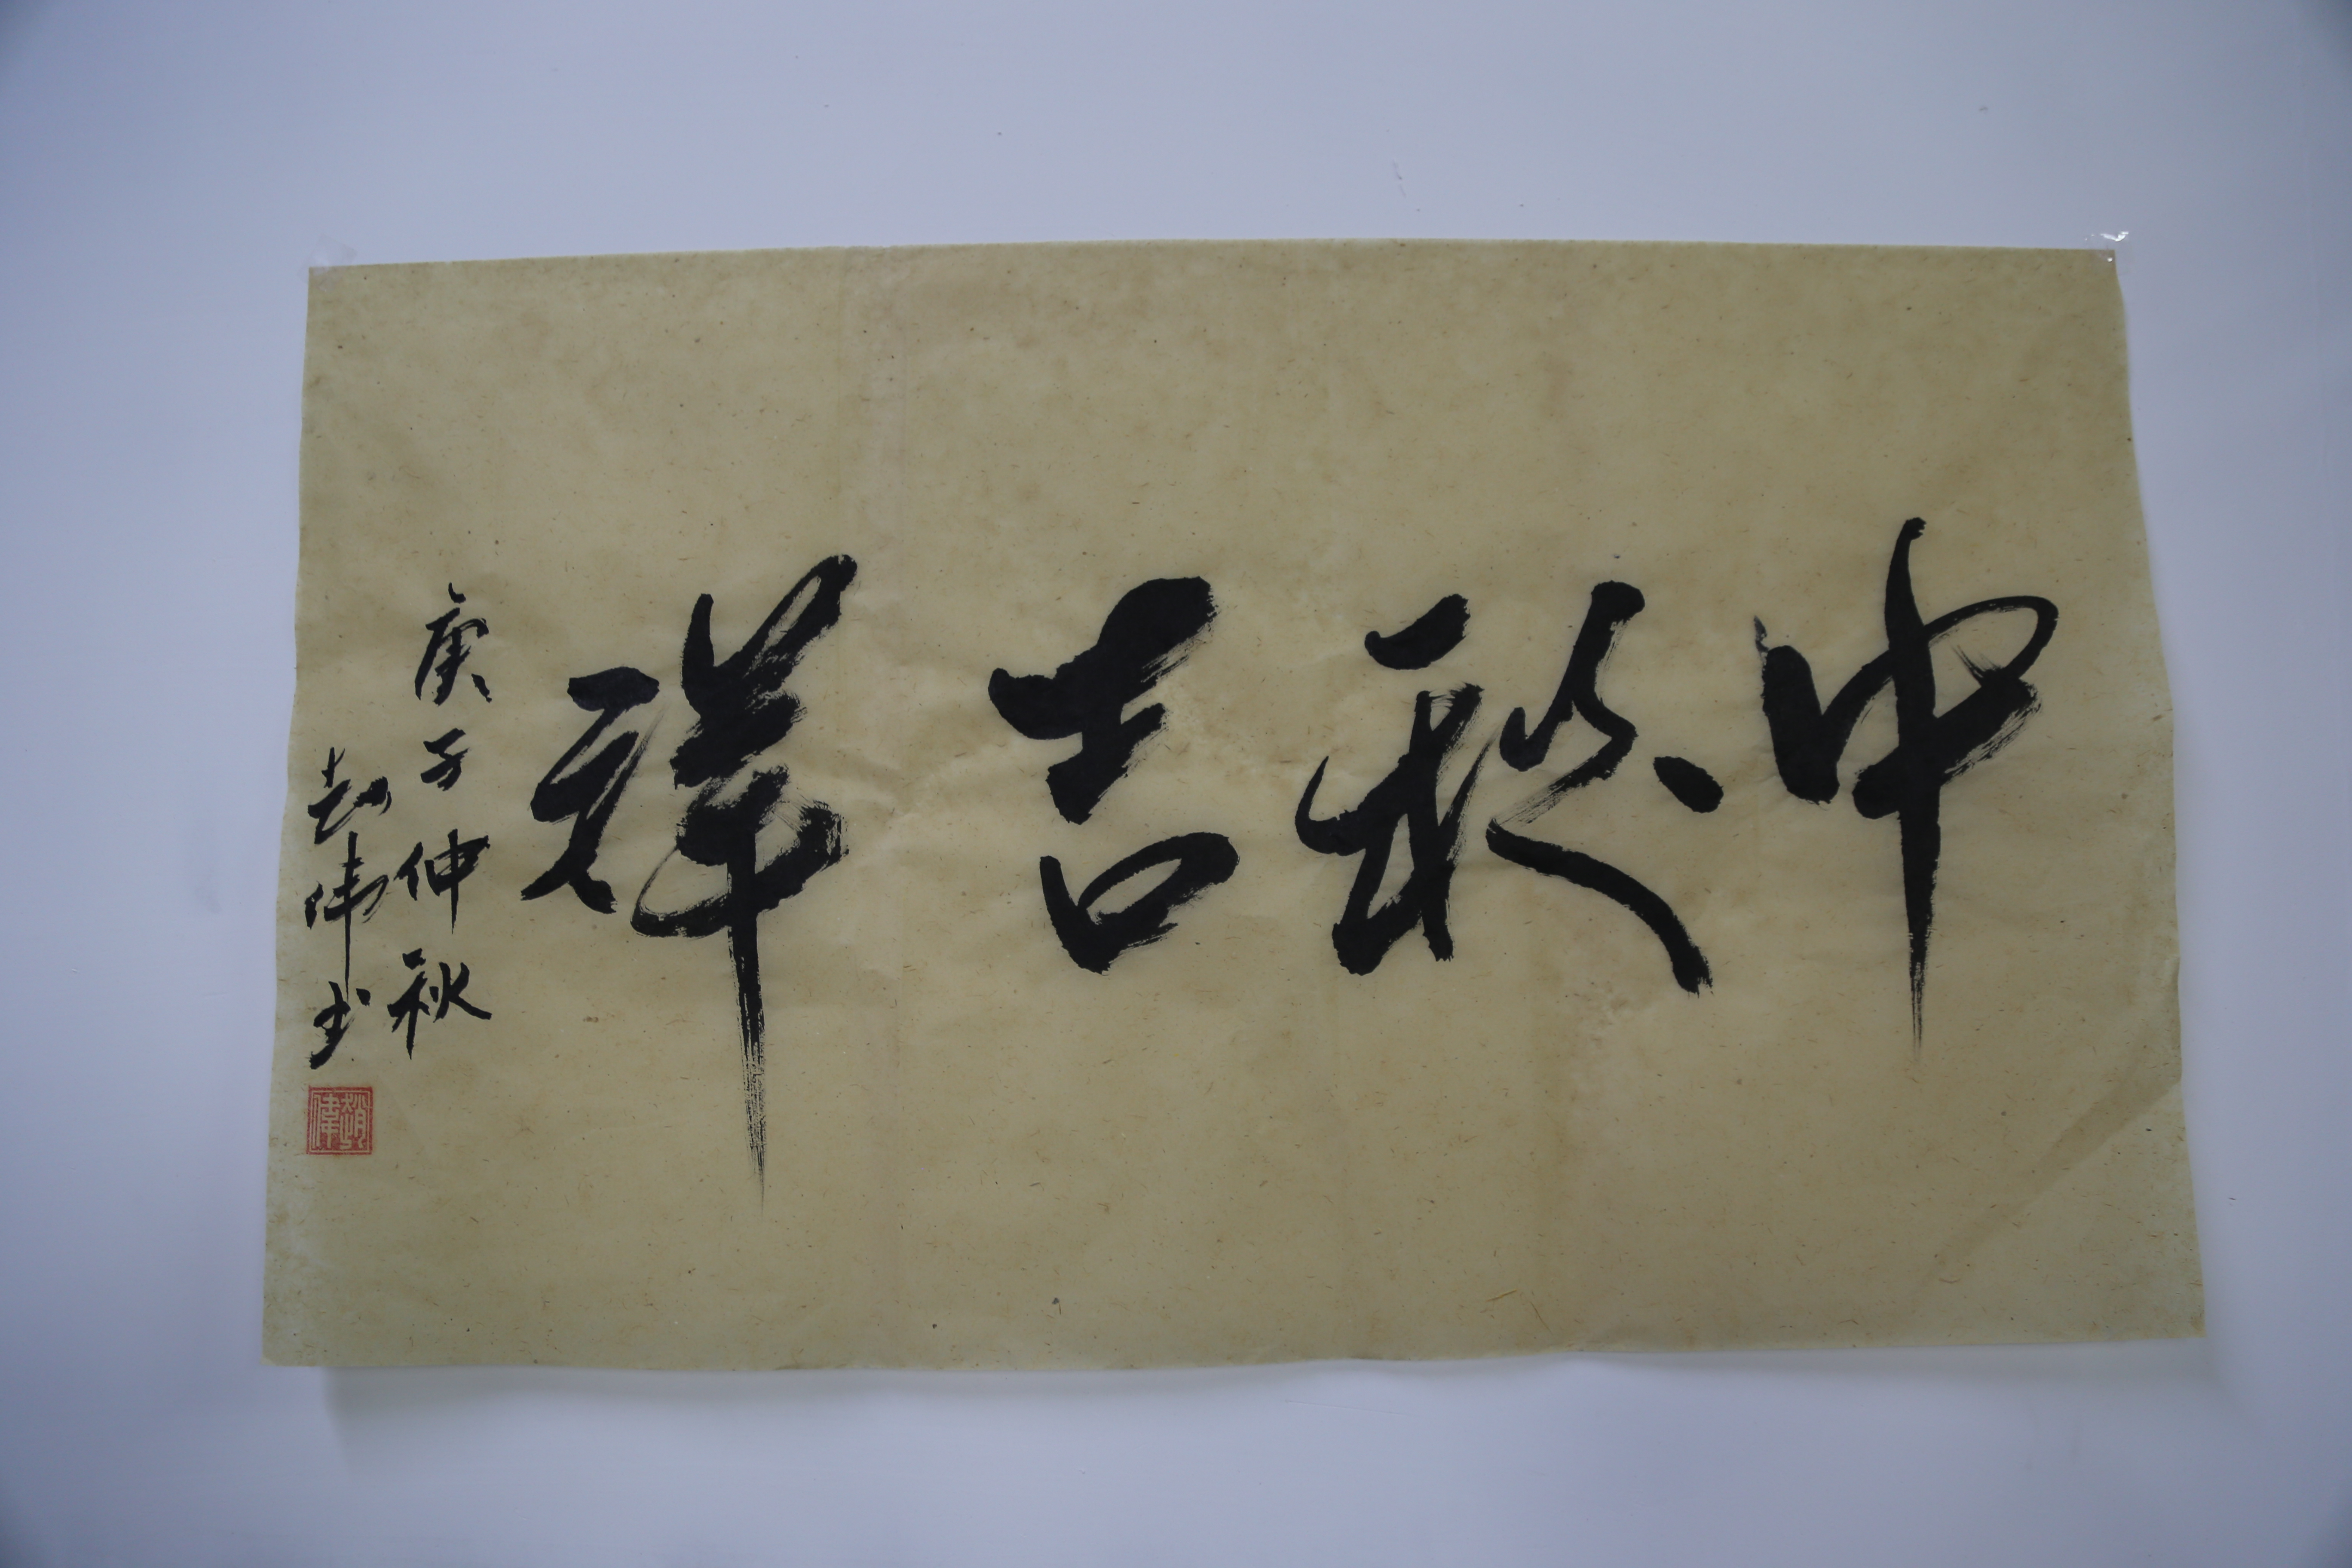 中秋吉祥
庚子仲秋
赵伟书
趙偉